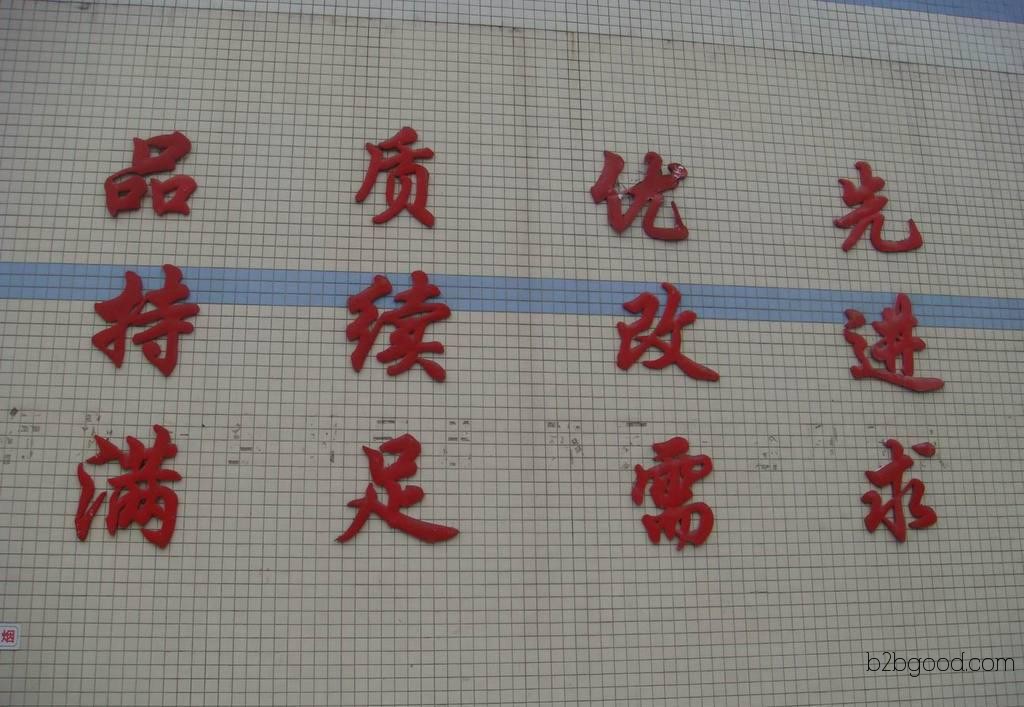 品质优先
持续改进
满足需求
烟
b2bgood.com